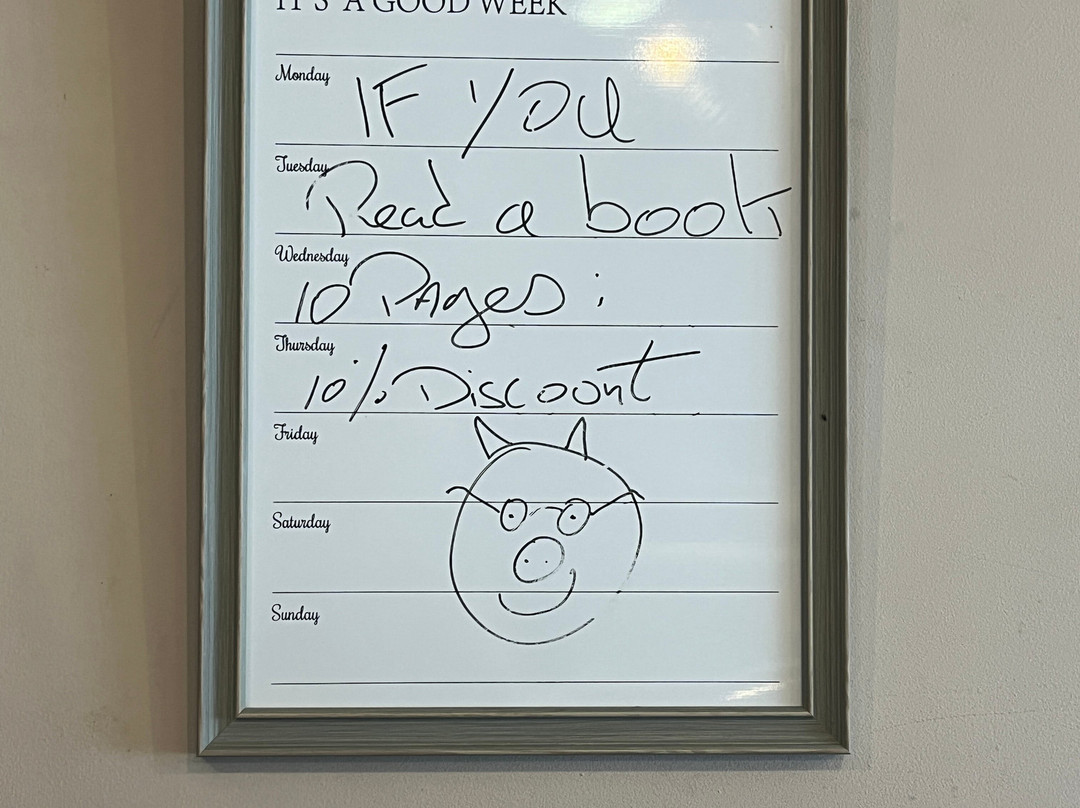 IT'S A GOOD WEEK
Monday
IF YOU
Tuesday
Read a book
Wednesday
10 PAges :
Thursday
10% Discount
Friday
Saturday
Sunday